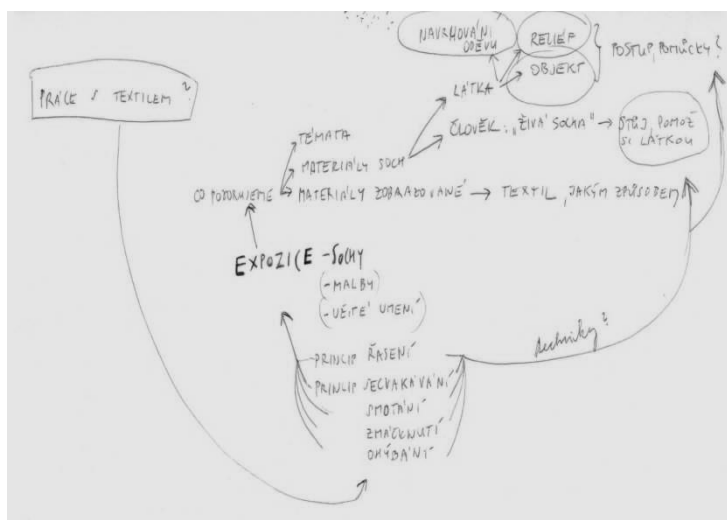 NAVRHOVÁNÍ
ODĚVU
RELIÉF
OBJEKT
POSTUP, POMŮCKY?
PRÁCE S TEXTILEM?
LÁTKA
ČLOVĚK: „ŽIVÁ SOCHA" → STŮJ, POMOŽ
SI LÁTKOU
TÉMATA
MATERIÁLY SOCH
CO POZORUJEME → MATERIÁLY ZOBRAZOVANÉ → TEXTIL, JAKÝM ZPŮSOBEM
EXPOZICE - SOCHY
(-MALBY)
(-UŽITÉ UMENÍ)
techniky?
PRINCIP ŘASENÍ
PRINCIP SECVAKÁVÁNÍ
SMOTÁNÍ
ZMÁČKNUTÍ
OHÝBÁNÍ